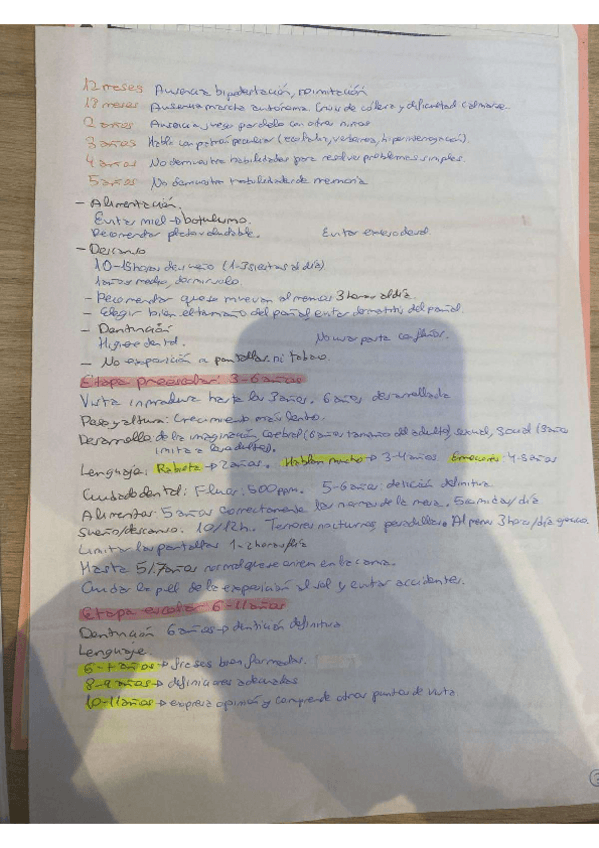 12 meses Ausencia bipedestación, no imitación
18 meses Ausencia marcha autónoma. Crisis de cólera y dificultad calmarse.
2 años Ausencia juego paralelo con otros niños
3 años Habla con patrón peculiar (ecolalia, verborrea, hiperinterrogación).
4 años No demuestra habilidades para resolver problemas simples.
5 años No demuestra habilidades de memoria
- Alimentación.
Evitar miel → botulismo.
Recomendar pleto saludable. Evitar
- Descanso
10-15 horas de sueño (1-3 siestas al día)
1 años medio, dormir solo.
- Recomendar que se muevan al menos 3 horas al día.
- Elegir bien el tamaño del pañal, evitar dermatitis del pañal.
- Dentición No usar pasta con flúor.
Higiene dental.
- No exposición a pantallas ni tabaco.
Etapa preescolar: 3-6 años
Vista inmadura hasta los 3 años. 6 años desarrollada
Peso y altura: Crecimiento más lento.
Desarrollo de la imaginación, cerebral (6 años tamaño del adulto) sexual, social (3 años
imita a los adultos).
Lenguaje: Rabieta → 2 años. Hablan mucho → 3-4 años Emociones → 4-5 años
Cuidado dental: Flúor: 500 ppm. 5-6 años: dentición definitiva
Alimentar: 5 años correctamente las normas de la mesa. 5 comidas/día
Sueño/descanso. 10/12h. Terrores nocturnos, pesadillas. Al menos 3 horas/día ejercicio.
Limitar las pantallas 1-2 horas/día
Hasta 5/7 años normal que se orinen en la cama.
Cuidar la piel de la exposición al sol y evitar accidentes.
Etapa escolar 6-11 años
Dentición 6 años → dentición definitiva
Lenguaje.
6-7 años → frases bien formadas.
8-9 años → definiciones adecuadas
10-11 años → expresa opinión y comprende otros puntos de vista.